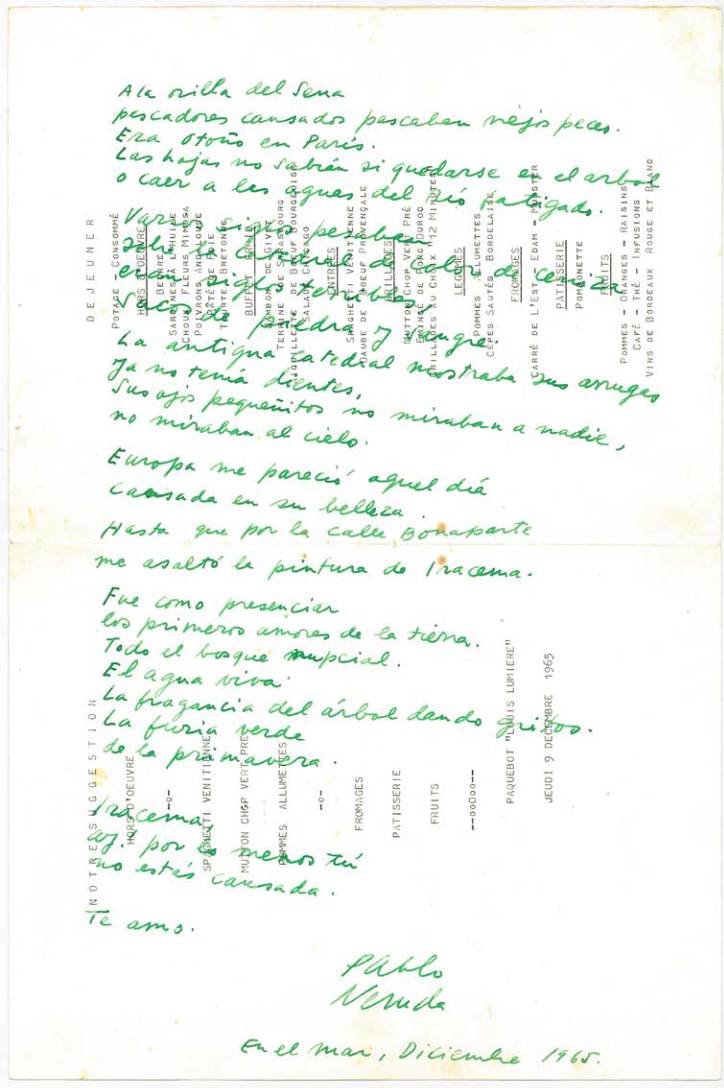 A la orilla del Sena
pescadores cansados pescaban viejos peces.
Era otoño en París.
Las hojas no sabían si quedarse en el arbol
o caer a las aguas del río fatigado.
Varios siglos pesaban
sobre la catedral de color de ceniza
eran siglos terribles
de piedra y sangre.
La antigua catedral mostraba sus arrugas
ya no tenía dientes,
sus ojos pequeñitos no miraban a nadie,
no miraban al cielo.
Europa me pareció aquel día
cansada en su belleza.
Hasta que por la calle Bonaparte
me asaltó la pintura de Iracema.
Fue como presenciar
los primeros amores de la tierra.
Todo el bosque nupcial.
El agua viva
La fragancia del árbol dando gritos.
La furia verde
de la primavera.
Iracema,
ay! por lo menos tú
no estás cansada.
Te amo.
Pablo
Neruda
En el mar, Diciembre 1965.
DEJEUNER
POTAGE - CONSOMMÉ
HORS D'OEUVRE
BEURRE
SARDINES À L'HUILE
CHOUX FLEURS MIMOSA
POIVRONS ANDALOUSE
TRIPES BRETONNES
BUFFET FROID
TERRINE DE STRASBOURG
AIGUILLETTE DE BOEUF BOURGEOISE
SALADE CHICAGO
ENTRÉES
SPAGHETTI VENITIENNE
DAUBE DE BOEUF PROVENÇALE
MUTTON CHOP VERT PRÉ
GRILLADES AU CHOIX "12 MINUTES"
LEGUMES
POMMES ALLUMETTES
CÈPES SAUTÉS BORDELAISE
FROMAGES
CARRÉ DE L'EST - EDAM - MUNSTER
PATISSERIE
POMPONETTE
FRUITS
POMMES - ORANGES - RAISINS
CAFÉ - THÉ - INFUSIONS
VINS DE BORDEAUX ROUGE ET BLANC
NOTRE SUGGESTION
HORS D'OEUVRE
--o--
SPAGHETTI VENITIENNE
MUTTON CHOP VERT PRE
POMMES ALLUMETTES
--o--
FROMAGES
PATISSERIE
FRUITS
--ooOoo--
PAQUEBOT "LOUIS LUMIERE"
JEUDI 9 DECEMBRE 1965